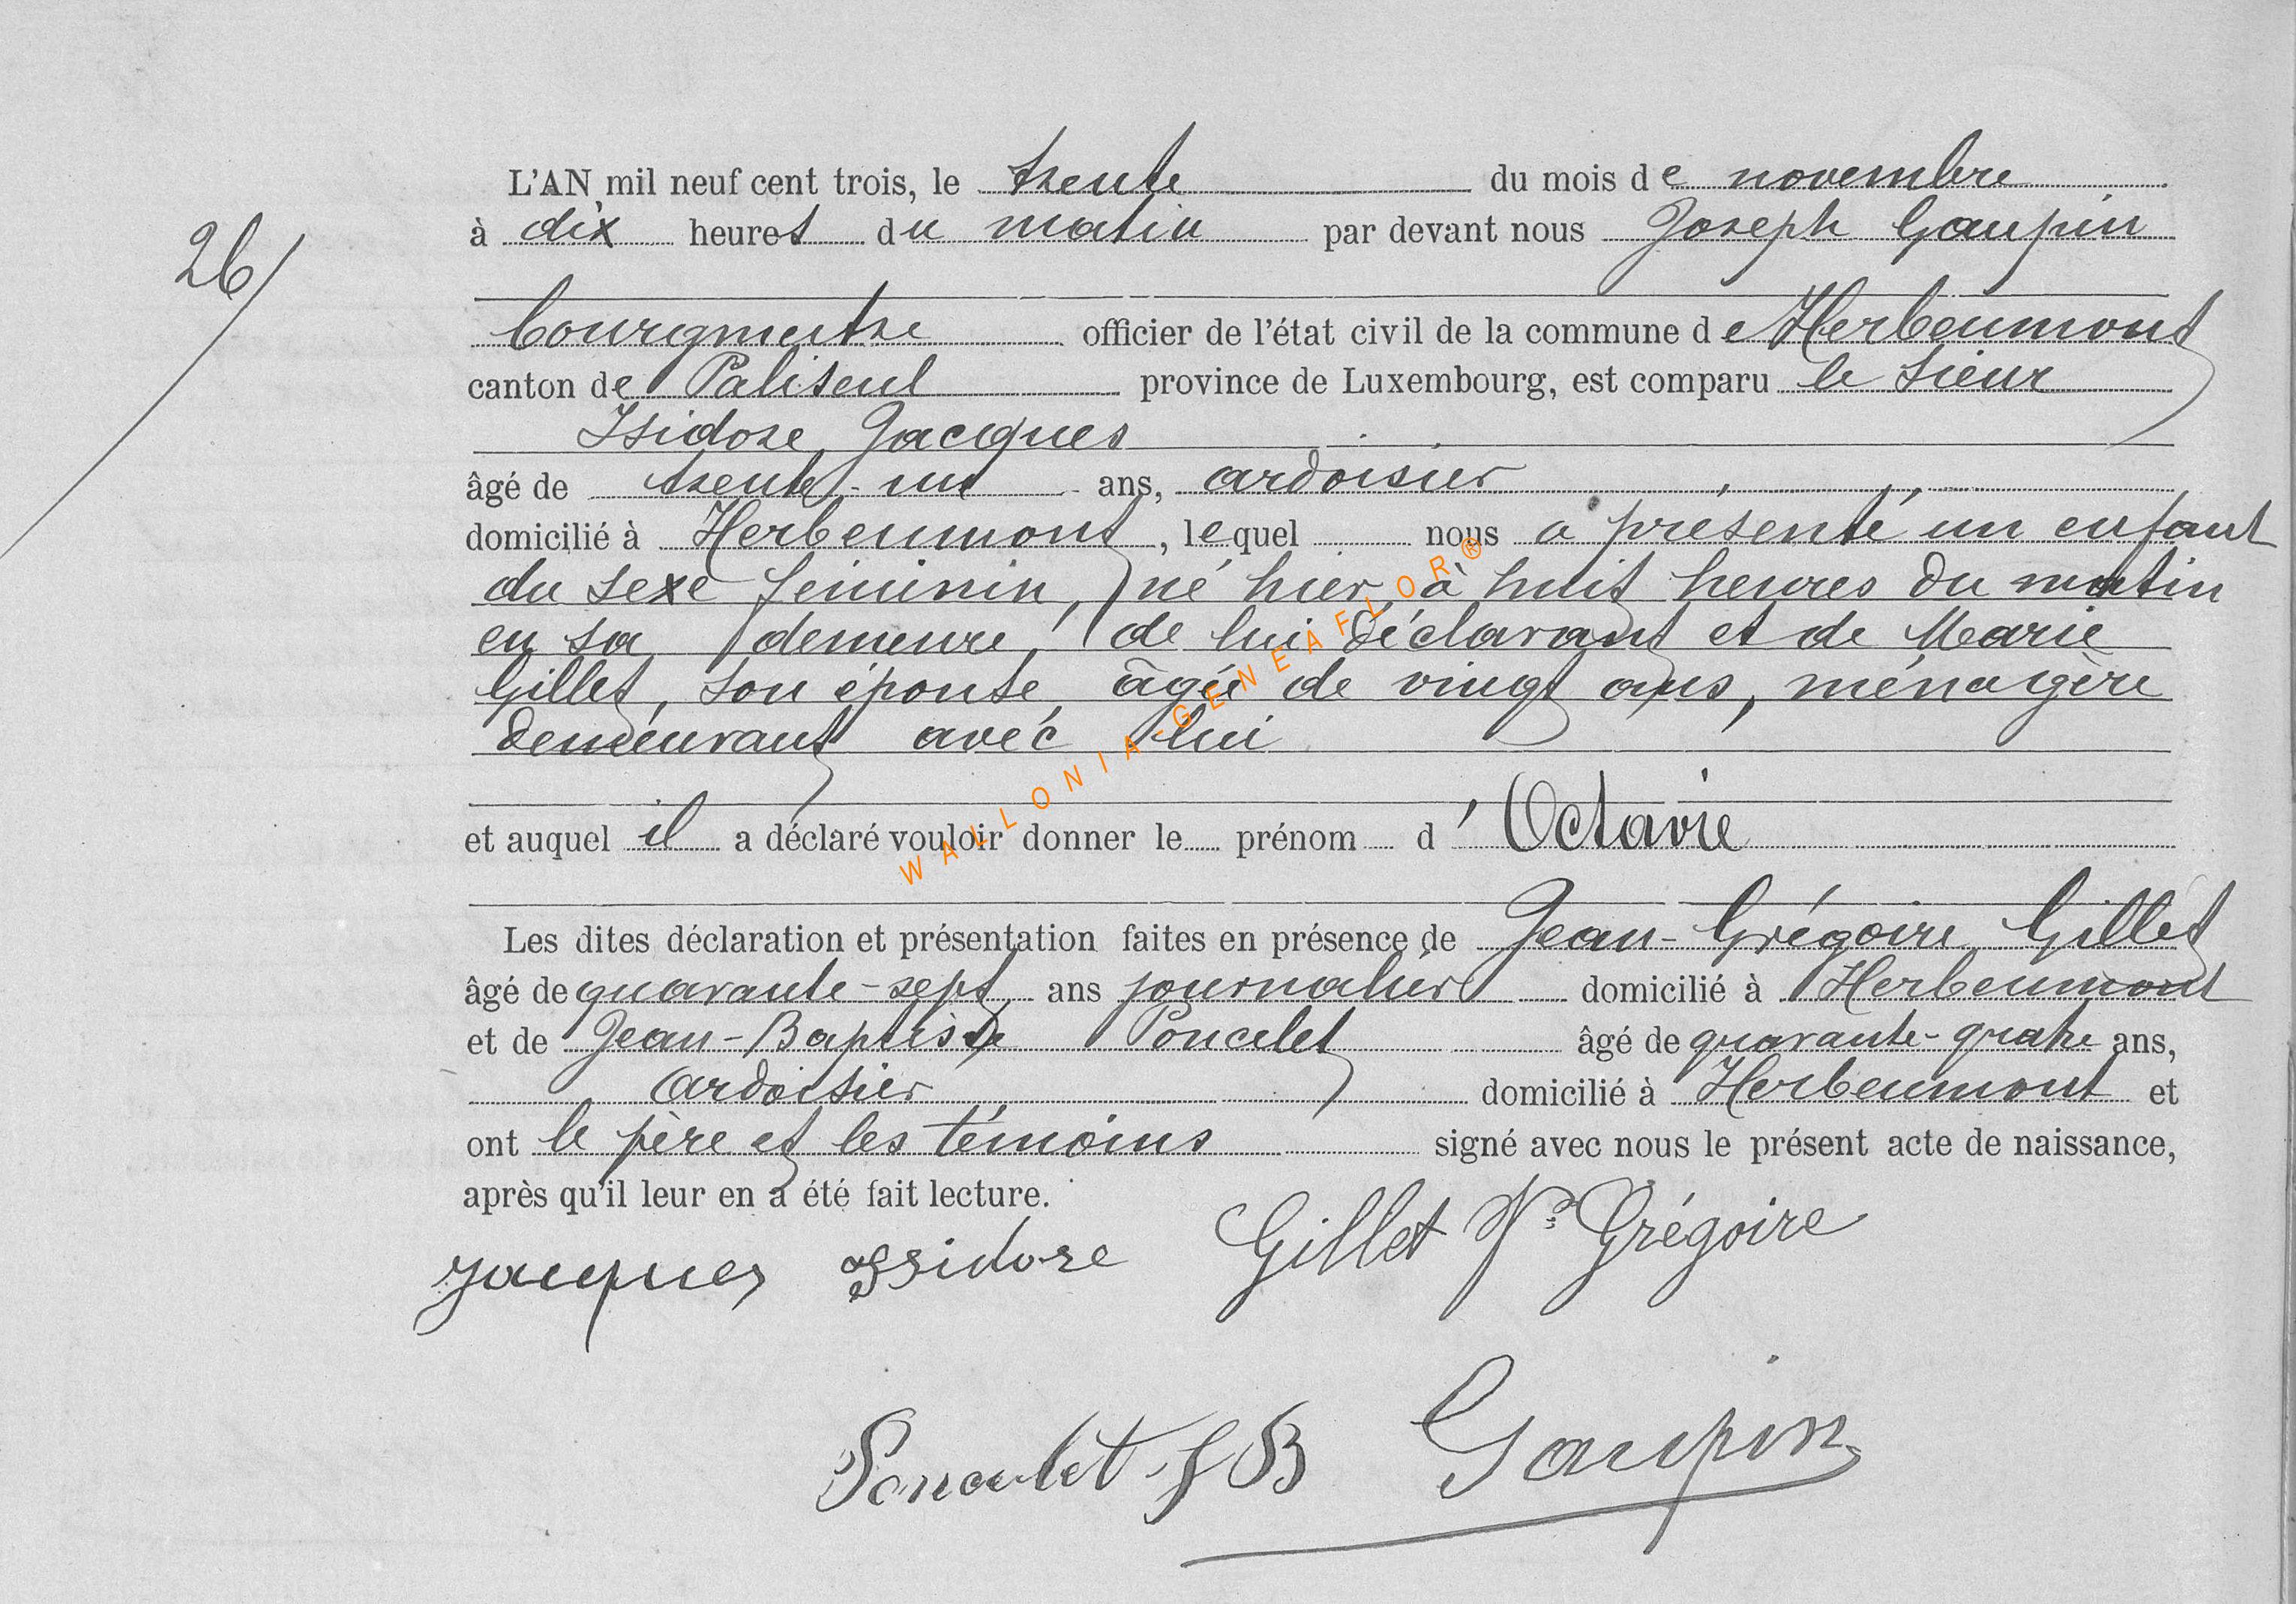 L'AN mil neuf cent trois, le trente du mois de novembre
26/
à dix heures du matin par devant nous Joseph Gaupin
bourgmestre officier de l'état civil de la commune de Herbeumont
canton de Paliseul province de Luxembourg, est comparu le sieur
Isidore Jacques
âgé de trente-un ans, ardoisier
domicilié à Herbeumont, lequel nous a présenté un enfant
du sexe féminin, né hier, à huit heures du matin
en sa demeure, de lui déclarant et de Marie
Gillet, son épouse, âgée de vingt ans, ménagère
demeurant avec lui
et auquel il a déclaré vouloir donner le prénom d'Octavie
Les dites déclaration et présentation faites en présence de Jean-Grégoire Gillet
âgé de quarante-sept ans journalier domicilié à Herbeumont
et de Jean-Baptiste Poncelet âgé de quarante-quatre ans,
ardoisier domicilié à Herbeumont et
ont le père et les témoins signé avec nous le présent acte de naissance,
après qu'il leur en a été fait lecture.
Jacques Isidore Gillet Grégoire
Poncelet JB Gaupin
WALLONIA-GENEAFLOR®